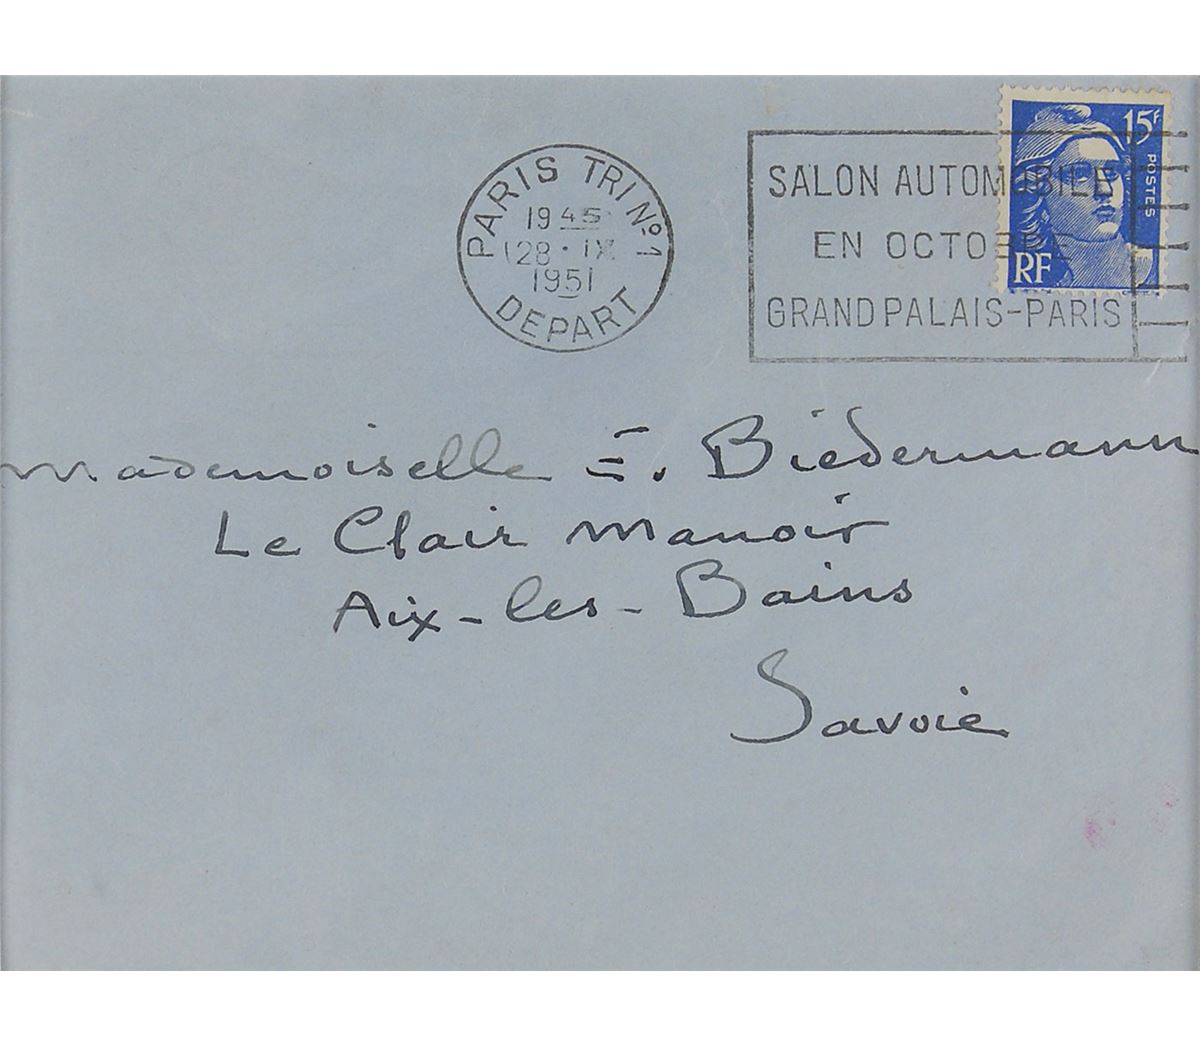 PARIS TRI Nº1
19 45
28 · IX
1951
DEPART
SALON AUTOMOBILE
EN OCTOBRE
GRAND PALAIS-PARIS
15F
POSTES
RF
Mademoiselle E. Biedermann
Le Clair Manoir
Aix-les-Bains
Savoie